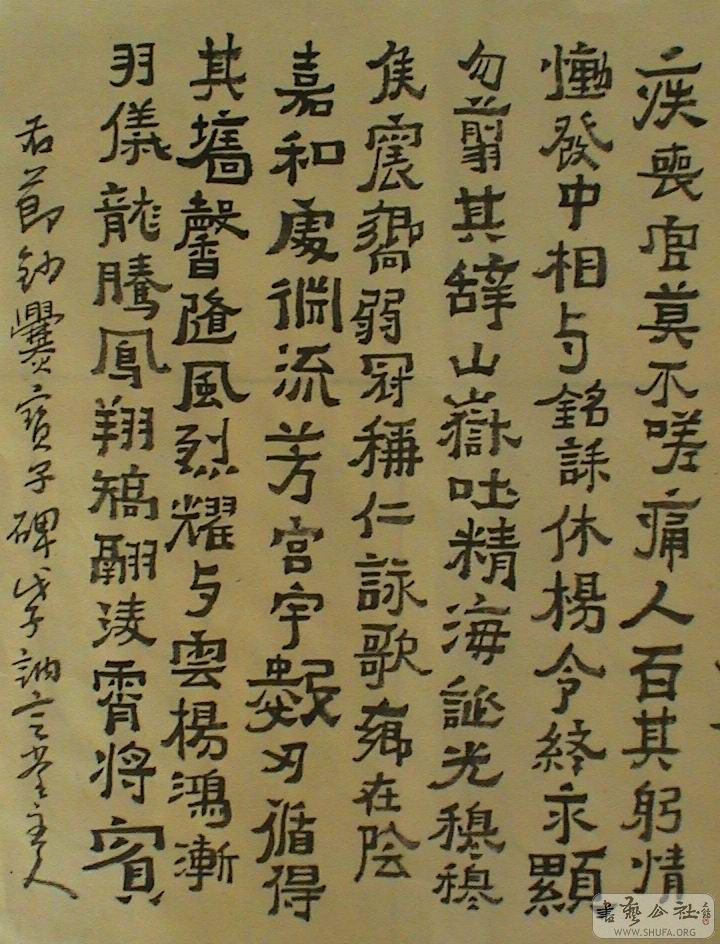 疾喪官莫不嗟痛人百其躬情
慟發中相与銘誄休楊令終永顯
勿翦其辭山嶽吐精海誕光穆穆
侯震嚮弱冠稱仁詠歌鄉在陰
嘉和處淵流芳宮宇數刃循得
其墻馨隨風烈耀与雲楊鴻漸
羽儀龍騰鳳翔矯翮淩霄將賓
右節鈔爨寶子碑戊子訥言堂主人
書藝公社
WWW.SHUFA.ORG